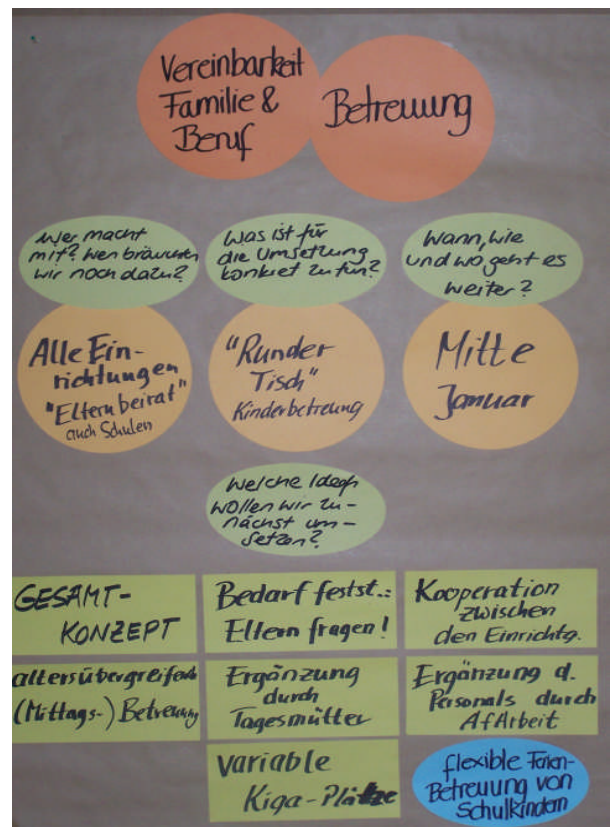 Vereinbarkeit
Familie &
Beruf
Betreuung
Wer macht
mit? Wen bräuchten
wir noch dazu?
Was ist für
die Umsetzung
konkret zu tun?
Wann, wie
und wo geht es
weiter?
Alle Ein-
richtungen
"Elternbeirat"
auch Schulen
"Runder
Tisch"
Kinderbetreung
Mitte
Januar
Welche Ideen
wollen wir zu-
nächst um-
setzen?
GESAMT-
KONZEPT
Bedarf festst.:
Eltern fragen!
Kooperation
zwischen
den Einrichtg.
altersübergreifende
(Mittags-) Betreuung
Ergänzung
durch
Tagesmütter
Ergänzung d.
Personals durch
AfArbeit
variable
Kiga-Plätze
flexible Ferien-
Betreuung von
Schulkindern